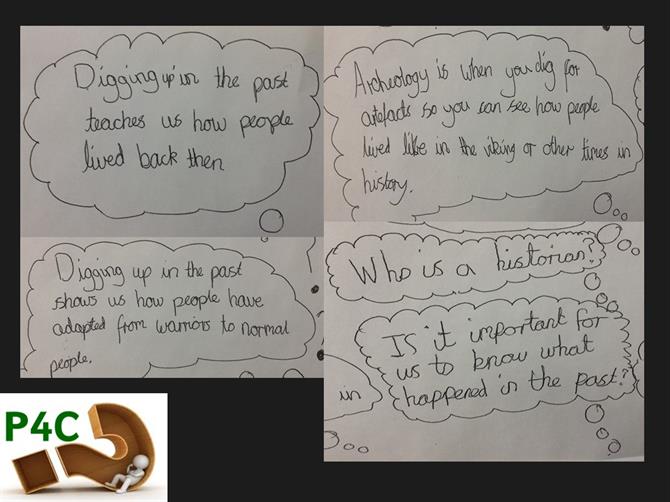 Digging up in the past
teaches us how people
lived back then
Archeology is when you dig for
artefacts so you can see how people
lived like in the viking or other times in
history.
Digging up in the past
shows us how people have
adapted from warriors to normal
people.
Who is a historian?
Is it important for
us to know what
happened in the past?
in
P4C